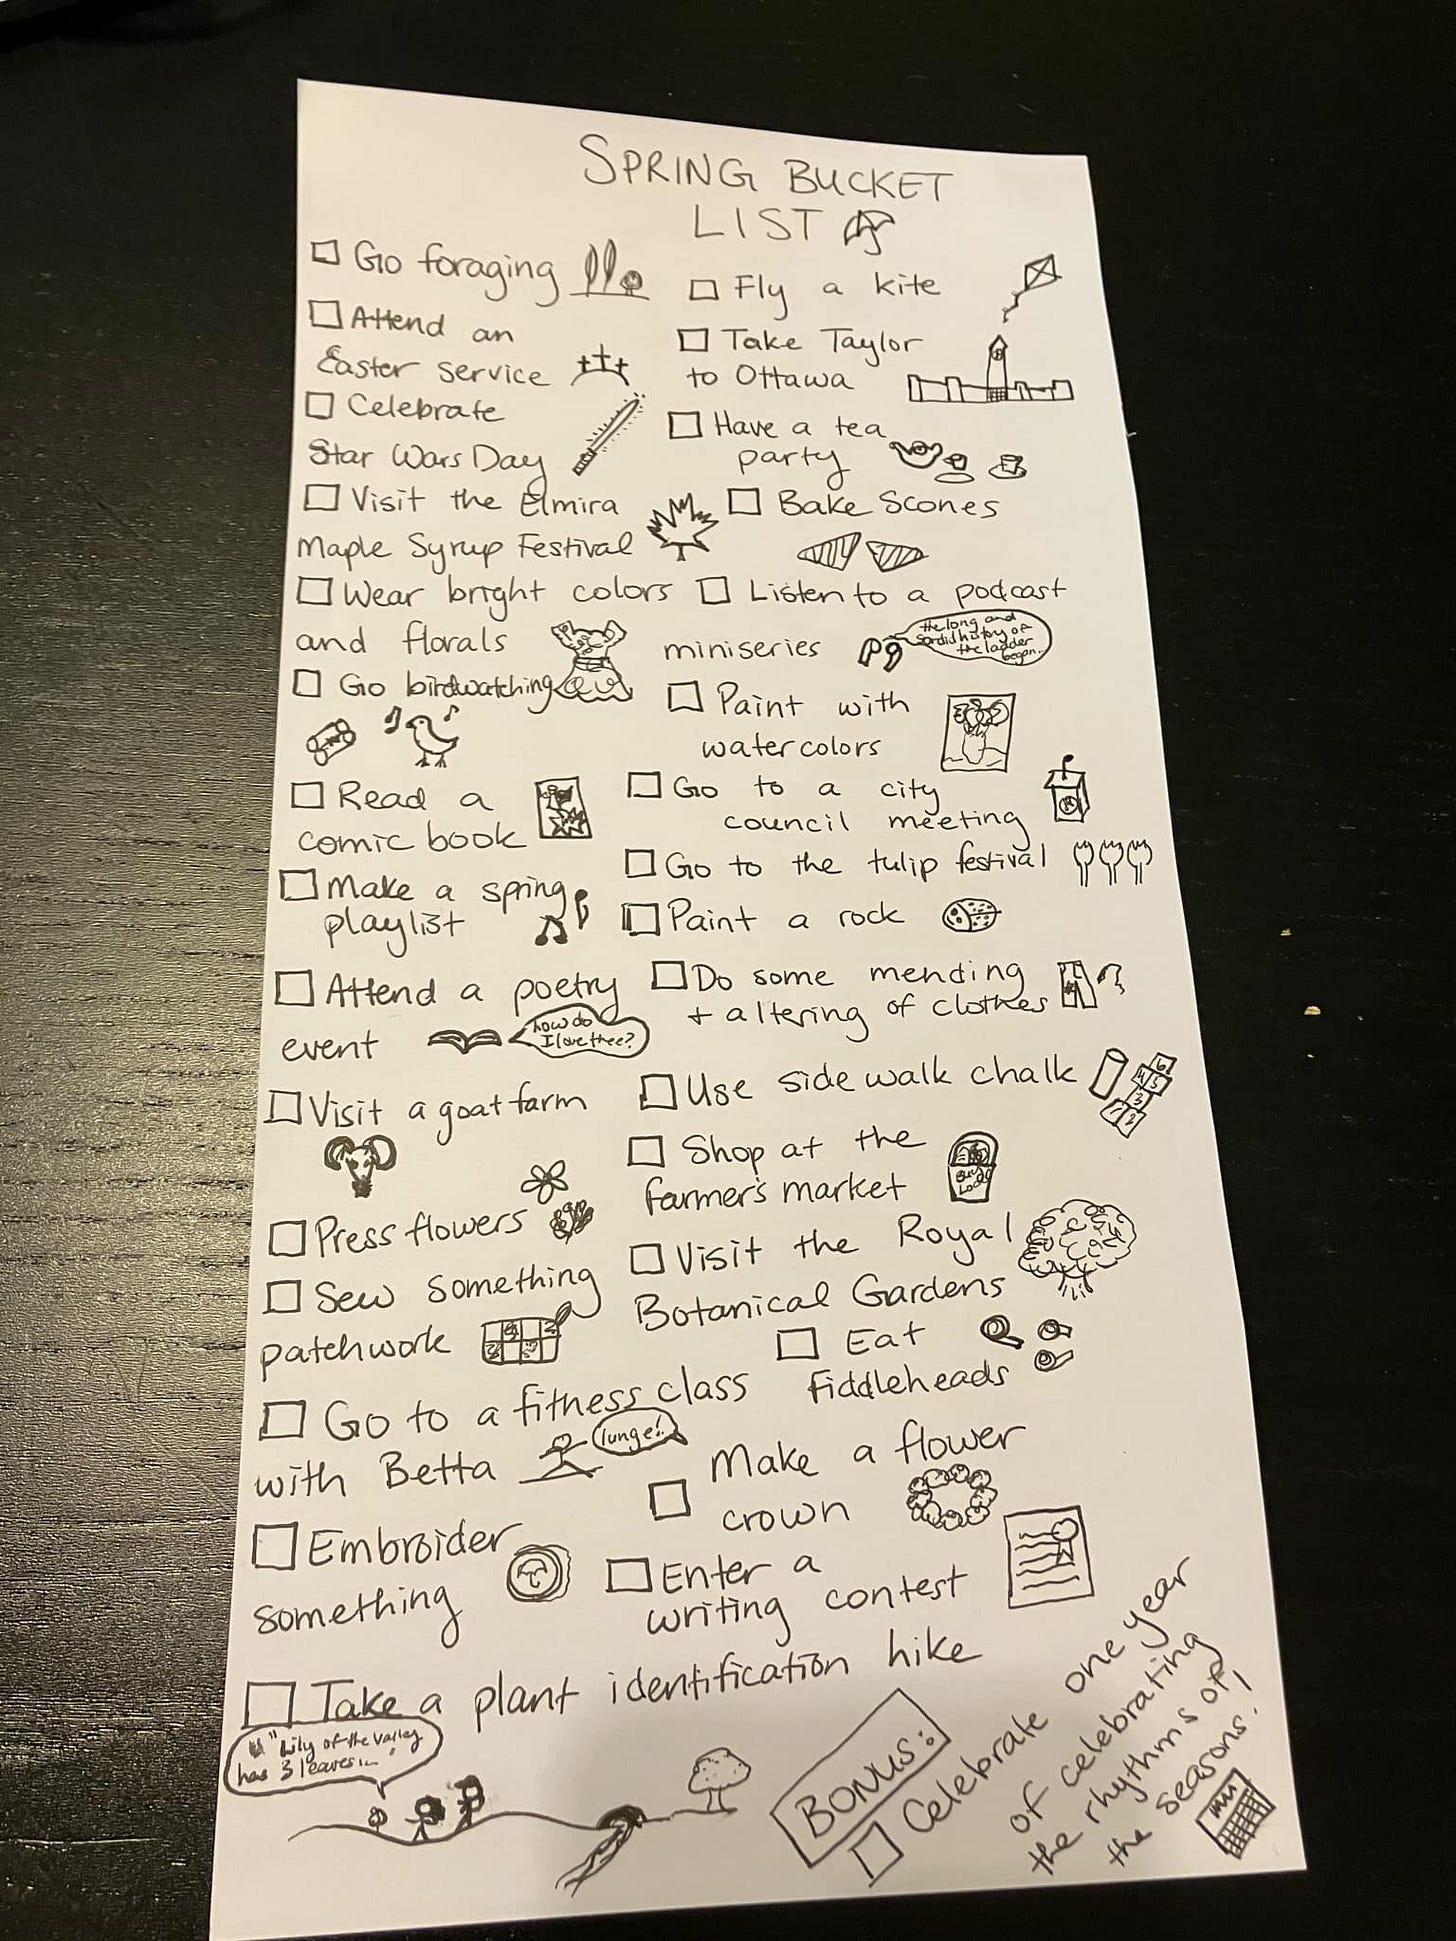 SPRING BUCKET
LIST
Go foraging
Attend an
Easter service
Celebrate
Star Wars Day
Visit the Elmira
Maple Syrup Festival
Wear bright colors
and florals
Go birdwatching
Read a
comic book
Make a spring
playlist
Attend a poetry
event
how do
I love thee?
Visit a goat farm
Press flowers
Sew something
patchwork
Go to a fitness class
with Betta
lunge!
Embroider
something
Take a plant identification hike
"Lily of the valley
has 3 leaves..."
Fly a kite
Take Taylor
to Ottawa
Have a tea
party
Bake Scones
Listen to a podcast
miniseries
the long and
sordid history of
the ladder
began...
Paint with
watercolors
Go to a city
council meeting
Go to the tulip festival
Paint a rock
Do some mending
+ altering of clothes
Use sidewalk chalk
1 2
3
4 5
6
Shop at the
farmer's market
Buy
Local
Visit the Royal
Botanical Gardens
Eat
fiddleheads
Make a flower
crown
Enter a
writing contest
BONUS:
Celebrate one year
of celebrating
the rhythms of
the seasons!